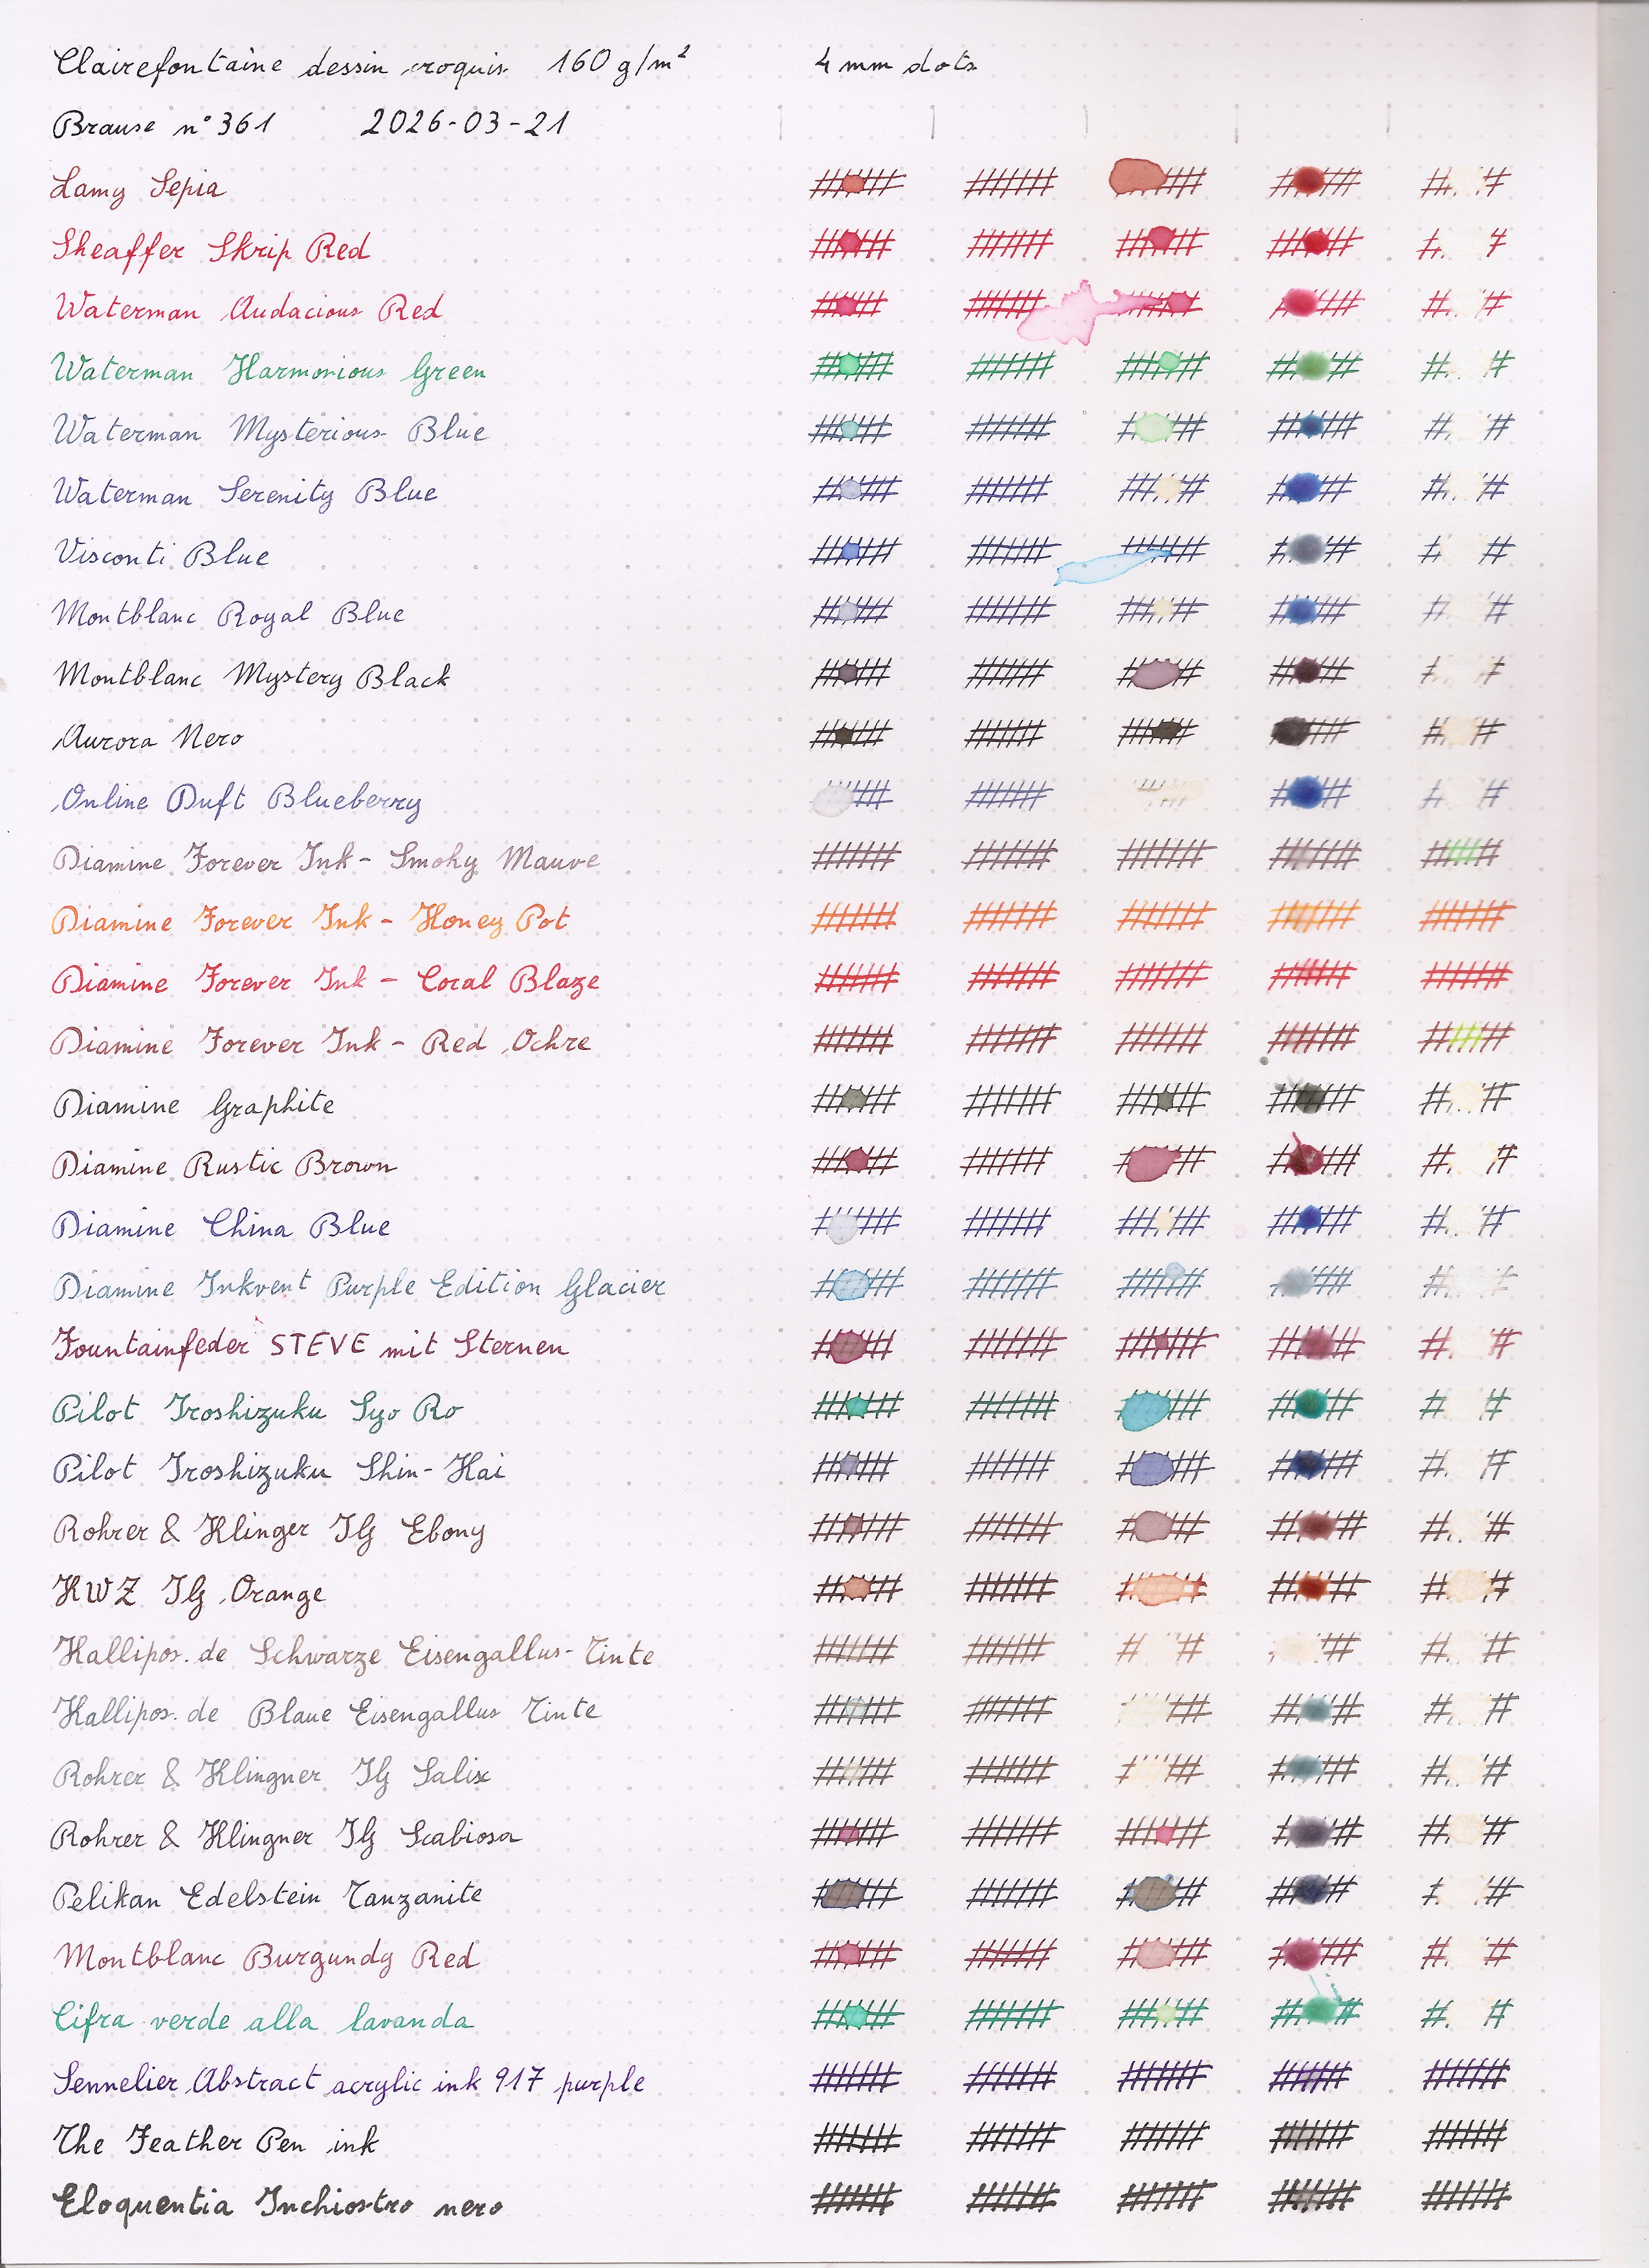 Clairefontaine dessin croquis 160 g/m² 4 mm dots
Brause n° 361 2026-03-21
Lamy Sepia
Sheaffer Skrip Red
Waterman Audacious Red
Waterman Harmonious Green
Waterman Mysterious Blue
Waterman Serenity Blue
Visconti Blue
Montblanc Royal Blue
Montblanc Mystery Black
Aurora Nero
Online Duft Blueberry
Diamine Forever Ink - Smoky Mauve
Diamine Forever Ink - Honey Pot
Diamine Forever Ink - Coral Blaze
Diamine Forever Ink - Red Ochre
Diamine Graphite
Diamine Rustic Brown
Diamine China Blue
Diamine Inkvent Purple Edition Glacier
Fountainfeder STEVE mit Sternen
Pilot Iroshizuku Syo Ro
Pilot Iroshizuku Shin-Kai
Rohrer & Klinger IG Ebony
KWZ IG Orange
Kallipos.de Schwarze Eisengallus-Tinte
Kallipos.de Blaue Eisengallus Tinte
Rohrer & Klingner IG Salix
Rohrer & Klingner IG Scabiosa
Pelikan Edelstein Tanzanite
Montblanc Burgundy Red
Cifra verde alla lavanda
Sennelier Abstract acrylic ink 917 purple
The Feather Pen ink
Eloquentia Inchiostro nero